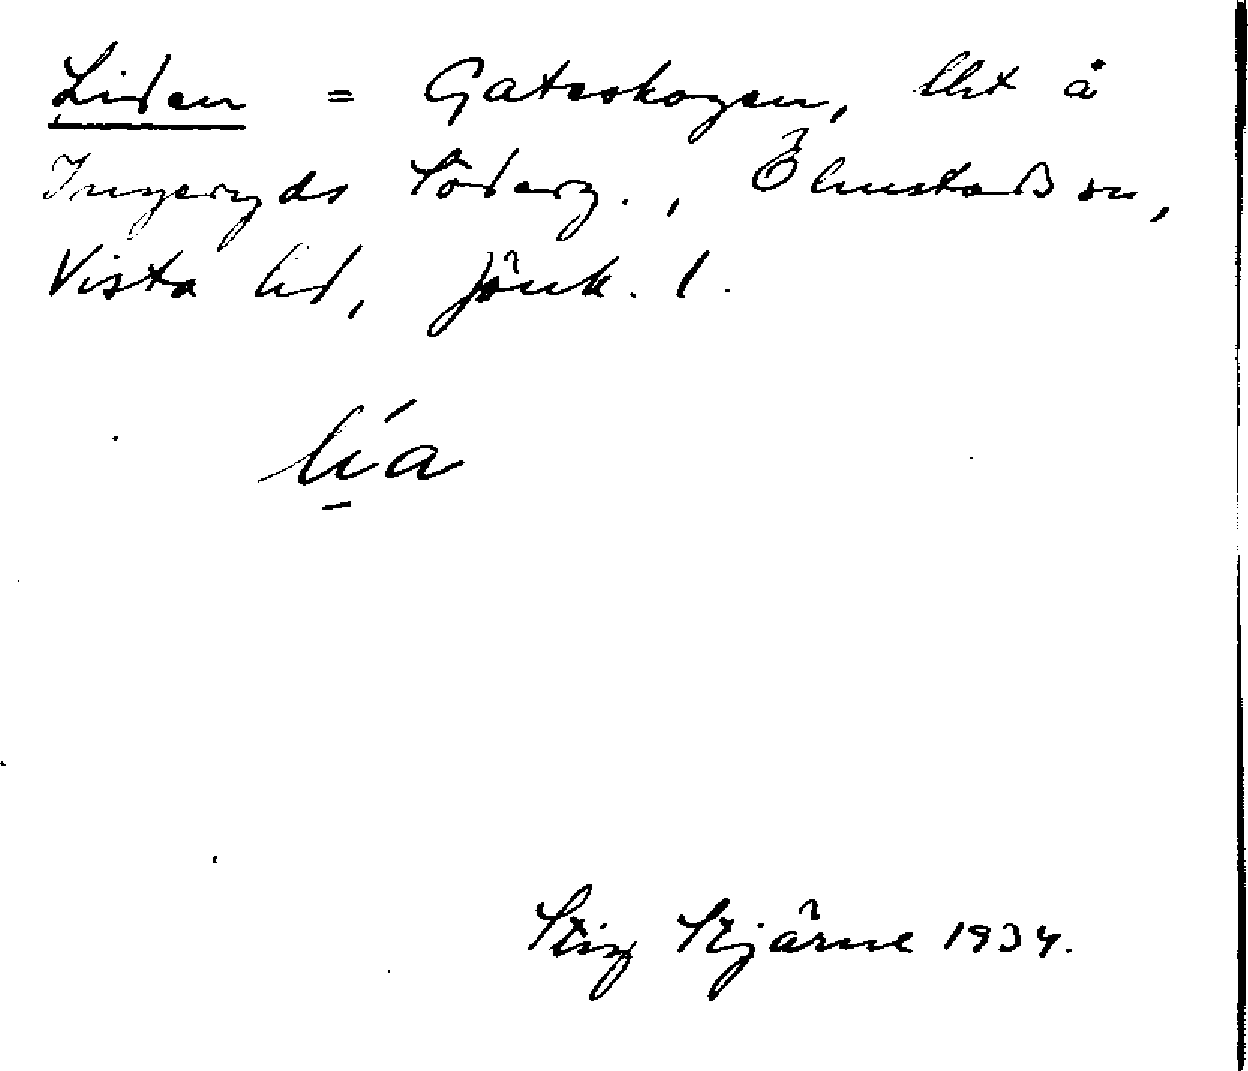 Liden = Gateskogen, lht å
Ingeryds Söderg., Ölmstad sn,
Vista hd, Jönk. l.
lía
Stig Stjärne 1934.